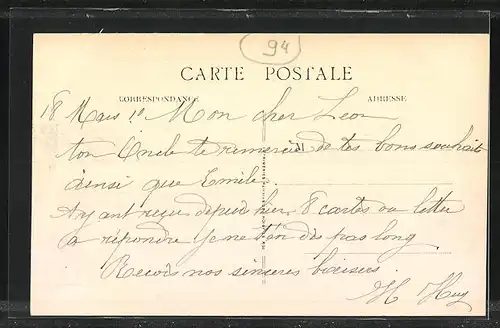 94
CARTE POSTALE
CORRESPONDANCE
ADRESSE
18 Mars 10 Mon cher Leon
ton Oncle te remercie de tes bons souhait
ainsi que Emile.
Ayant reçu depuis hier 8 cartes ou lettre
a répondre je ne t'en dis pas long
Recois nos sinceres baisers.
H Huy